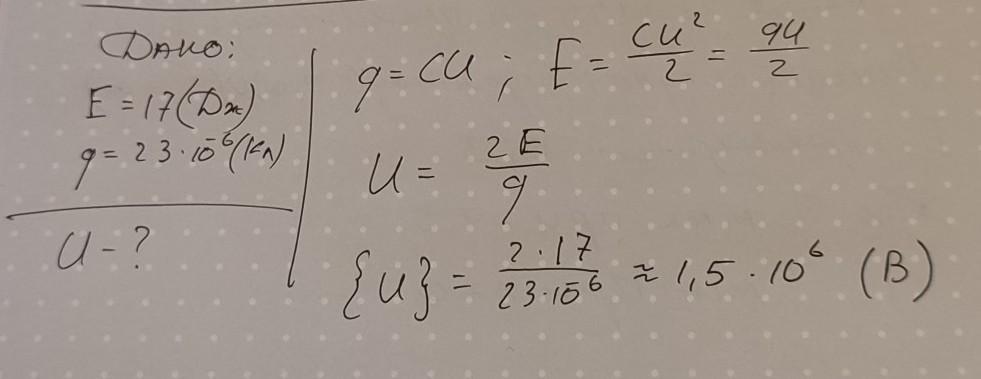 Дано:
E = 17 (Дж)
q = 23 · 10⁻⁶ (Кл)
U - ?
q = CU ; E = CU²/2 = qU/2
U = 2E/q
{U} = 2 · 17/23 · 10⁻⁶ ≈ 1,5 · 10⁶ (В)